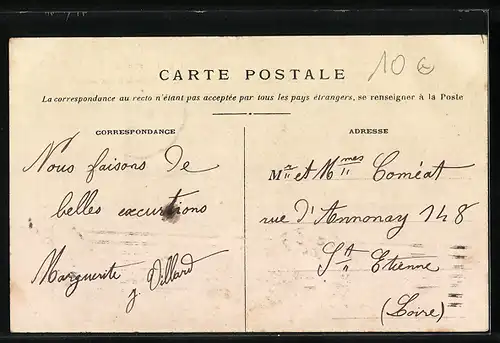 10 €
CARTE POSTALE
La correspondance au recto n'étant pas acceptée par tous les pays étrangers, se renseigner à la Poste
CORRESPONDANCE
Nous faisons de
belles excurtions
Marguerite
J. Villard
ADRESSE
Mr et Mmes Coméat
rue d'Annonay 148
St Etienne
(Loire)